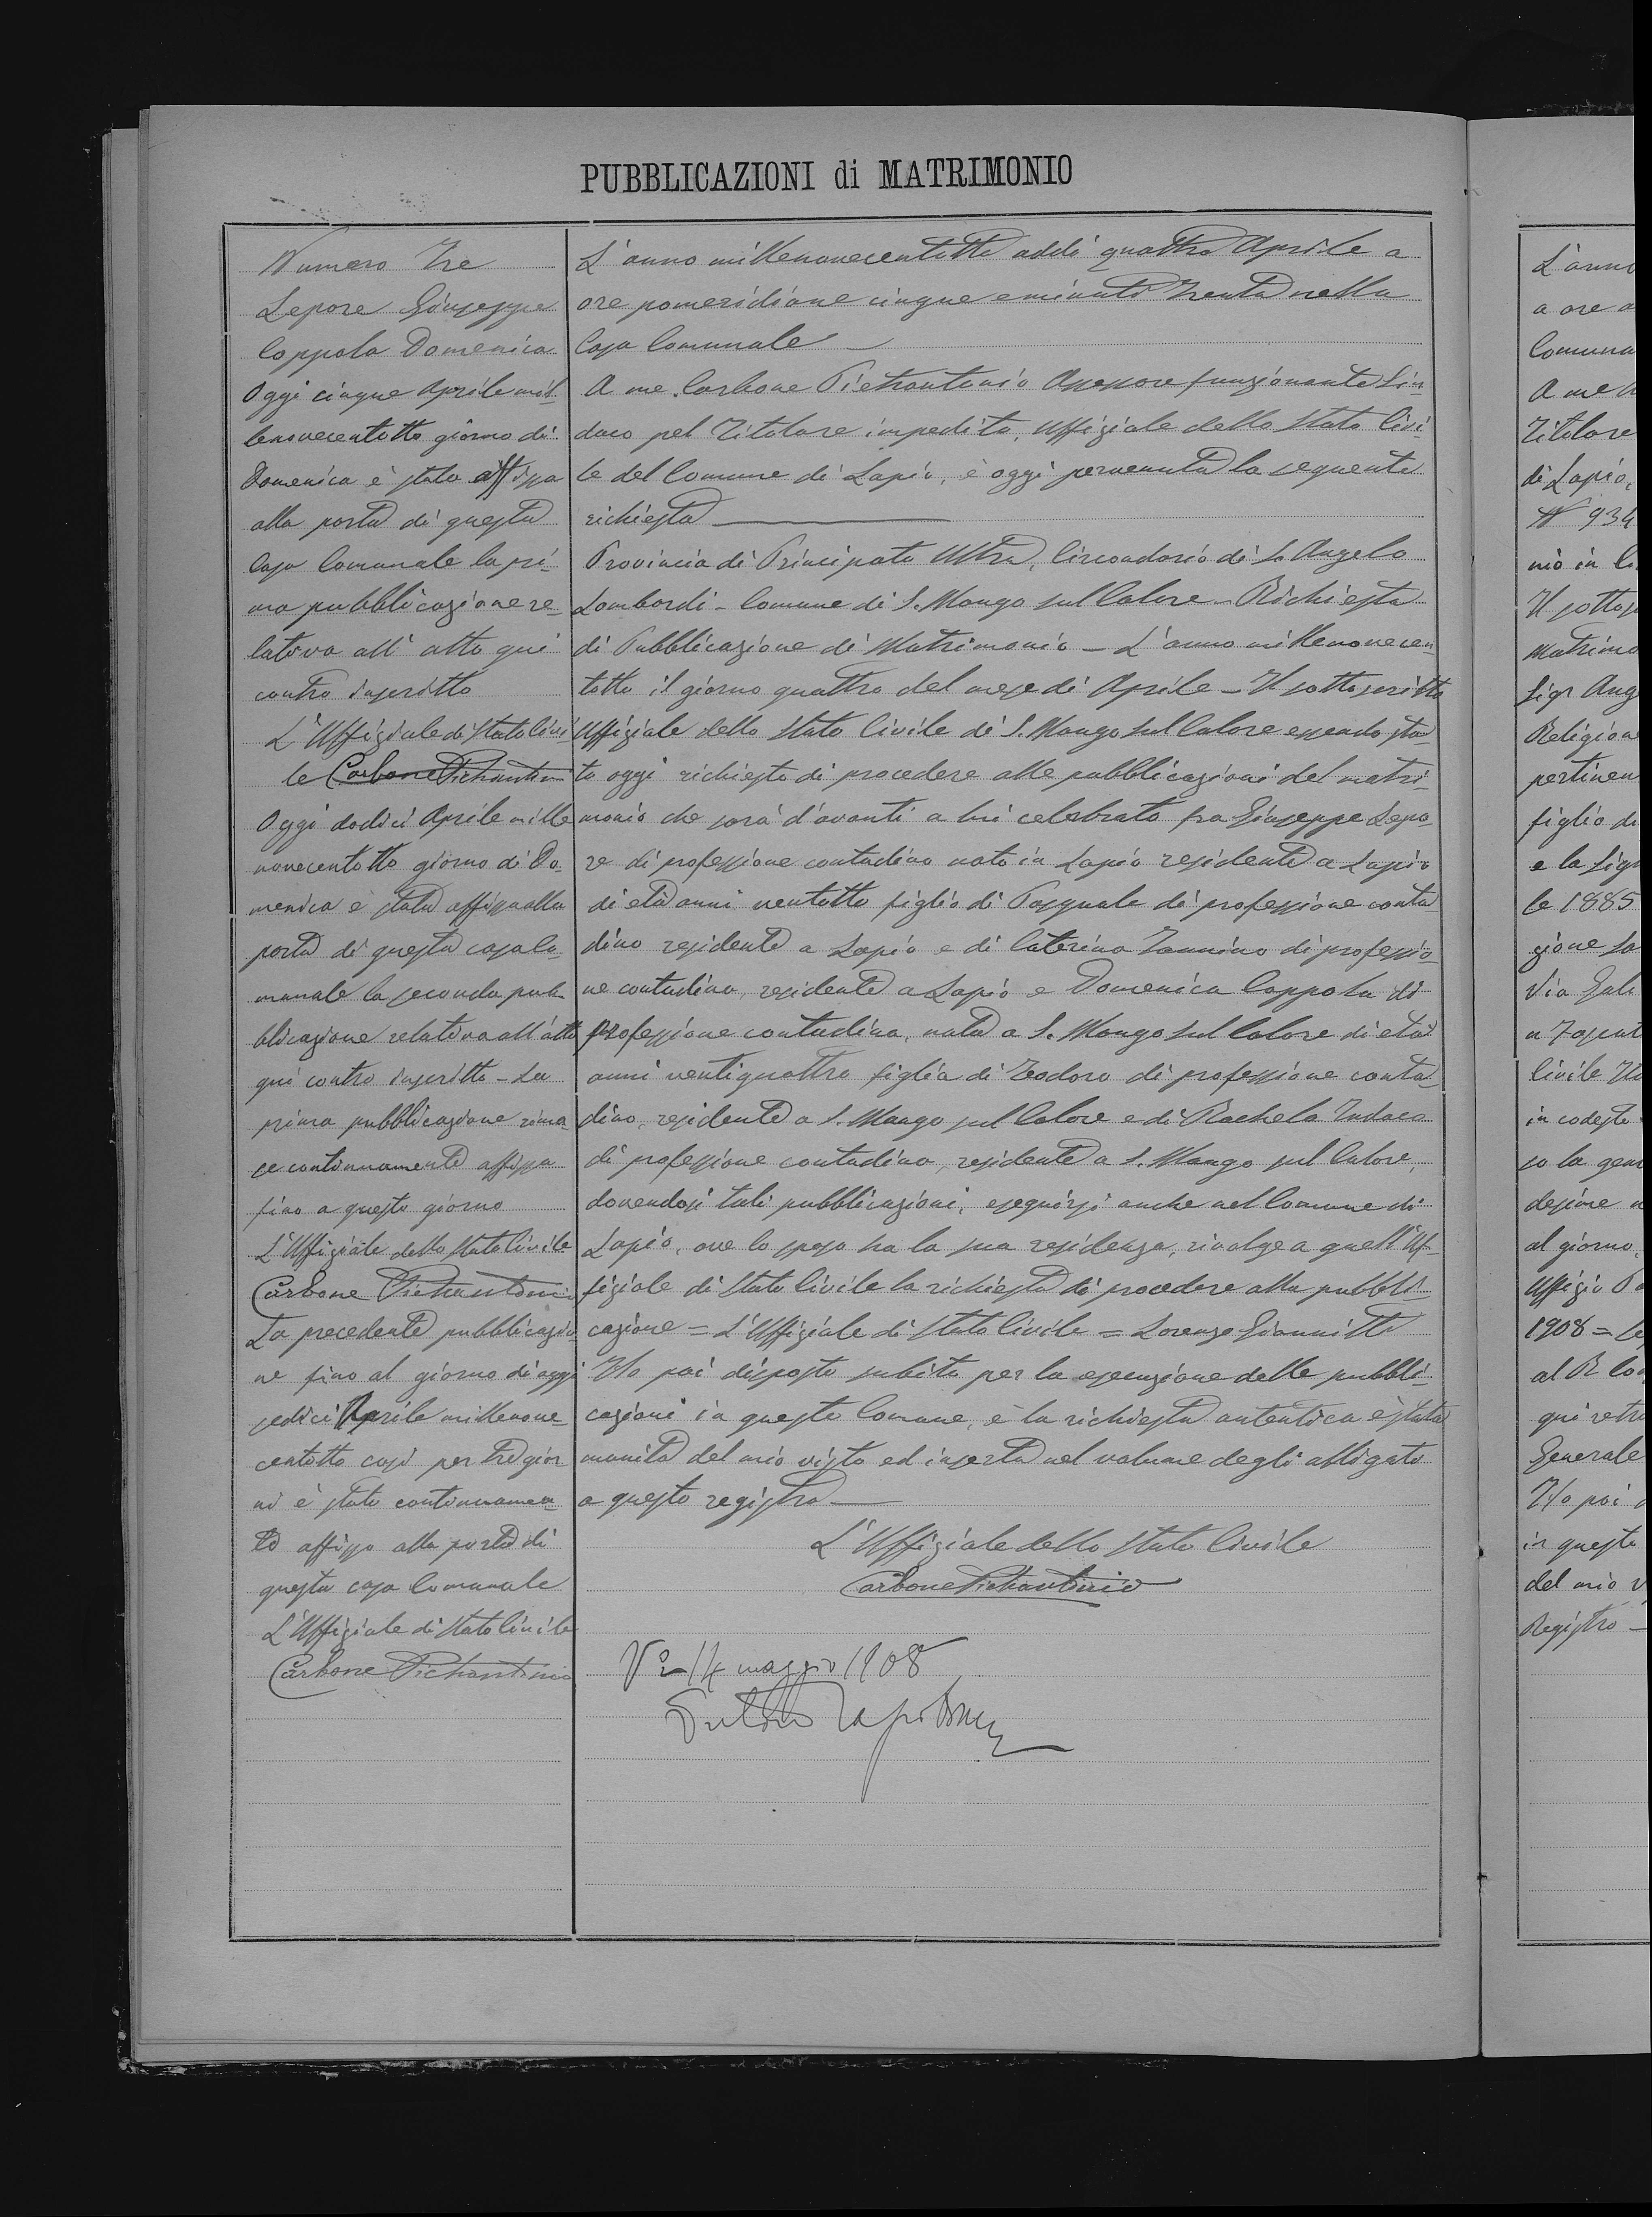 PUBBLICAZIONI di MATRIMONIO
Numero Tre
Lepore Giuseppe
Coppola Domenica
Oggi cinque Aprile mil-
lenovecentotto giorno di
Domenica è stata affissa
alla porta di questa
Casa Comunale la pri-
ma pubblicazione re-
lativa all'atto qui
contro inscritto
L'Uffiziale di Stato Civi
le Carbone Pietrantonio
Oggi dodici Aprile mille
novecentotto giorno di Do-
menica è stata affissa alla
porta di questa casa Co-
munale la seconda pub-
blicazione relativa all'atto
qui contro inscritto - La
prima pubblicazione rima-
se continuamente affissa
fino a questo giorno
L'Uffiziale dello Stato Civile
Carbone Pietrantonio
La precedente pubblicazio
ne fino al giorno di oggi
sedici Aprile millenove-
centotto così per tre gior
ni è stata continuamen-
te affissa alla porta di
questa casa Comunale
L'Uffiziale di Stato Civile
Carbone Pietrantonio
L'anno millenovecentotto addì quattro Aprile a
ore pomeridiane cinque e minuti trenta nella
Casa Comunale
A me Carbone Pietrantonio Assessore funzionante Sin-
daco pel Titolare impedito, Uffiziale dello Stato Civi-
le del Comune di Lapio, è oggi pervenuta la seguente
richiesta
Provincia di Principato Ultra, Circondario di S. Angelo
Lombardi - Comune di S. Mango sul Calore - Richiesta
di Pubblicazione di Matrimonio - L'anno millenovecen-
totto il giorno quattro del mese di Aprile - Il sottoscritto
Uffiziale dello Stato Civile di S. Mango sul Calore essendo sta-
to oggi richiesto di procedere alle pubblicazioni del matri-
monio che sarà d'avanti a lui celebrato fra Giuseppe Lepo-
re di professione contadino nato in Lapio residente a Lapio
di età anni ventotto figlio di Pasquale di professione conta-
dino residente a Lapio e di Caterina Iannino di professio-
ne contadina, residente a Lapio e Domenica Coppola di
professione contadina, nata a S. Mango sul Calore di età
anni ventiquattro figlia di Teodoro di professione conta-
dino, residente a S. Mango sul Calore e di Rachela
di professione contadina, residente a S. Mango sul Calore,
dovendosi tali pubblicazioni, eseguirsi anche nel Comune di
Lapio, ove lo sposo ha la sua residenza, rivolge a quell'Uf-
fiziale di Stato Civile la richiesta di procedere alla pubbli-
cazione = L'Uffiziale di Stato Civile = Lorenzo Giannitti
Ho poi disposto subito per la esecuzione delle pubbli-
cazioni in questo Comune, e la richiesta autentica è stata
munita del mio visto ed inserta nel volume degli alligati
a questo registro
L'Uffiziale dello Stato Civile
Carbone Pietrantonio
Vo 14 maggio 1908
L'anno
a ore a
Comuna
A me
Titolare
di Lapio,
N 934
nio in
Il sottos
Matrimo
Sigr Ang
Religion
pertinen
figlio di
e la Sig
le 1885
zione
Via
Civile
in codesto
so la gen
al giorno
Uffizio
1908 =
al R
Generale
Ho poi
in questo
del mio v
Registro -